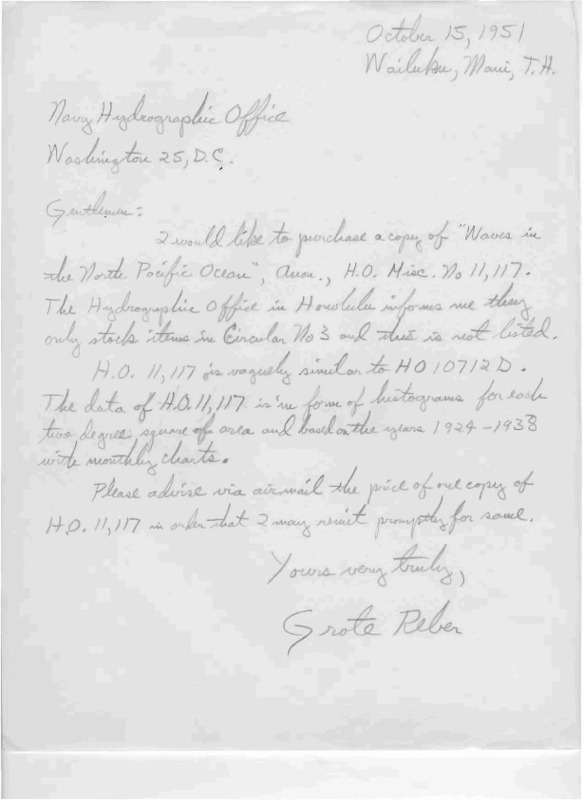 October 15, 1951
Wailuku, Maui, T.H.
Navy Hydrographic Office
Washington 25, D.C.
Gentlemen:
I would like to purchase a copy of "Waves in
the North Pacific Ocean", Anon., H.O. Misc. No 11,117.
The Hydrographic Office in Honolulu informs me they
only stock items in Circular No 3 and this is not listed.
H.O. 11,117 is vaguely similar to HO 10712 D.
The data of H.O. 11,117 is in form of histograms for each
two degree square of area and based on the years 1924-1938
with monthly charts.
Please advise via airmail the price of one copy of
H.O. 11,117 in order that I may remit promptly for same.
Yours very truly,
Grote Reber